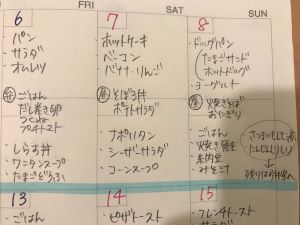 FRI
SAT
SUN
6
・パン
・サラダ
・オムレツ
・ごはん
だし巻き卵
つくね
プチトマト
・しらす丼
・ワンタンスープ
・たまごどうふ
7
・ホットケーキ
・ベーコン
・バナナ・りんご
昼 ・そぼろ丼
ポテトサラダ
・ナポリタン
・シーザーサラダ
・コーンスープ
8
・ドッグパン
たまごサンド
ホットドッグ
・ヨーグルト
昼 ・焼きそば
おにぎり
・ごはん
・焼き鮭
・納豆
・みそ汁
さつまいも
にんじんしりしり
残りはお弁当へ
13
・ごはん
14
・ピザトースト
15
・フレンチトースト